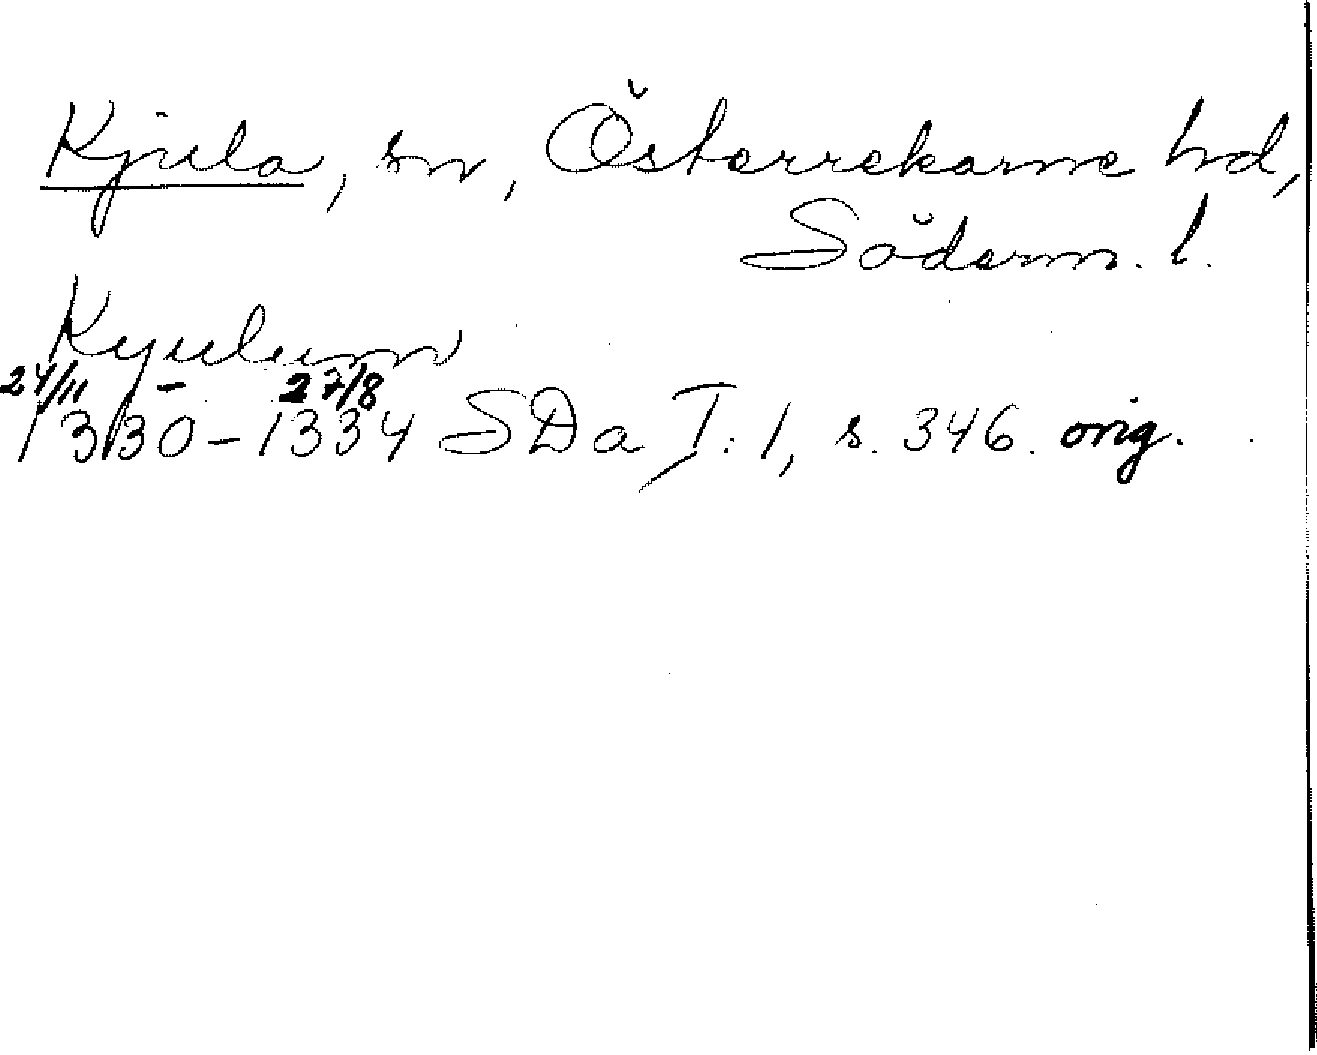 Kjula, sn, Österrekarne hd,
Söderm. l.
Kyulum
24/11 – 27/8
1330–1334 SDa I:1, s. 346. orig.